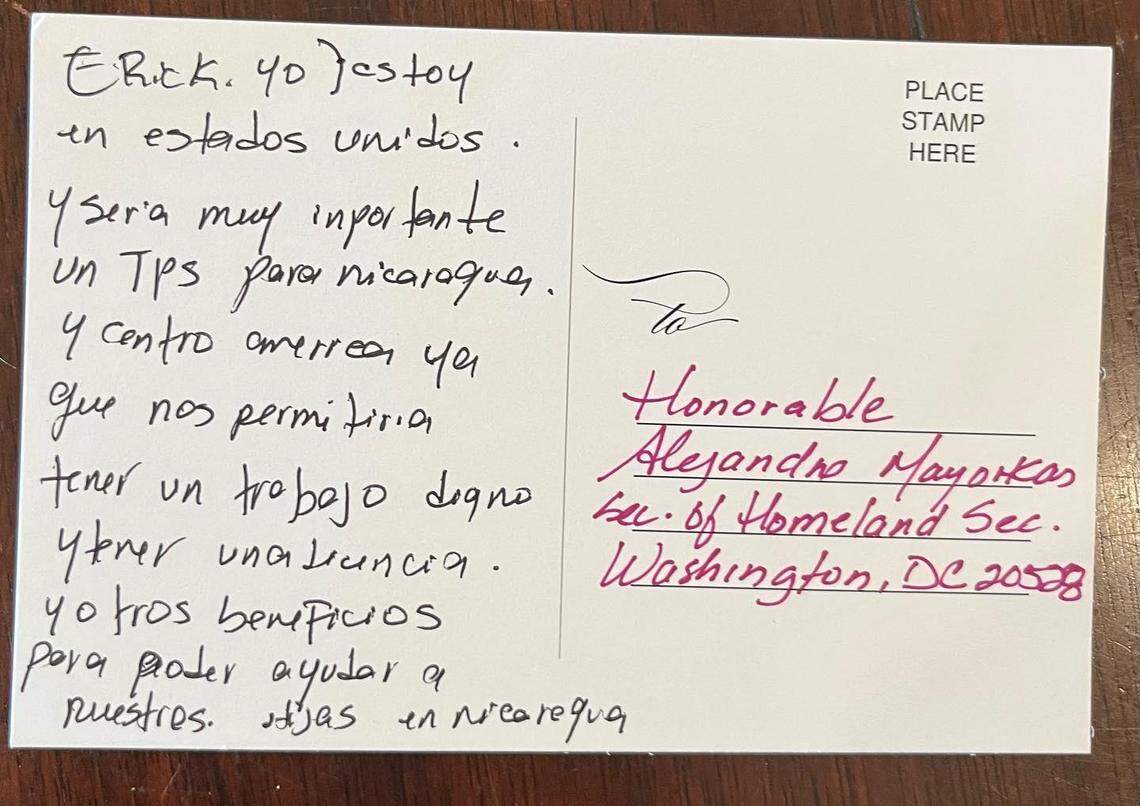 ERick. yo estoy
en estados unidos.
y seria muy inportante
un TPS para nicaragua.
y centro america ya
que nos permitiria
tener un trabajo digno
y tener una licencia.
y otros beneficios
para poder ayudar a
nuestros. en nicaragua
PLACE
STAMP
HERE
to
Honorable
Alejandro Mayorkas
Sec. of Homeland Sec.
Washington, DC 20528